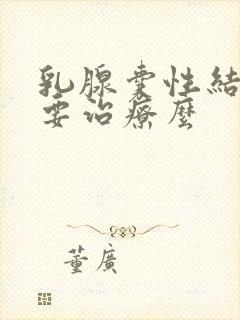 乳腺囊性結
要治療麼
董廣